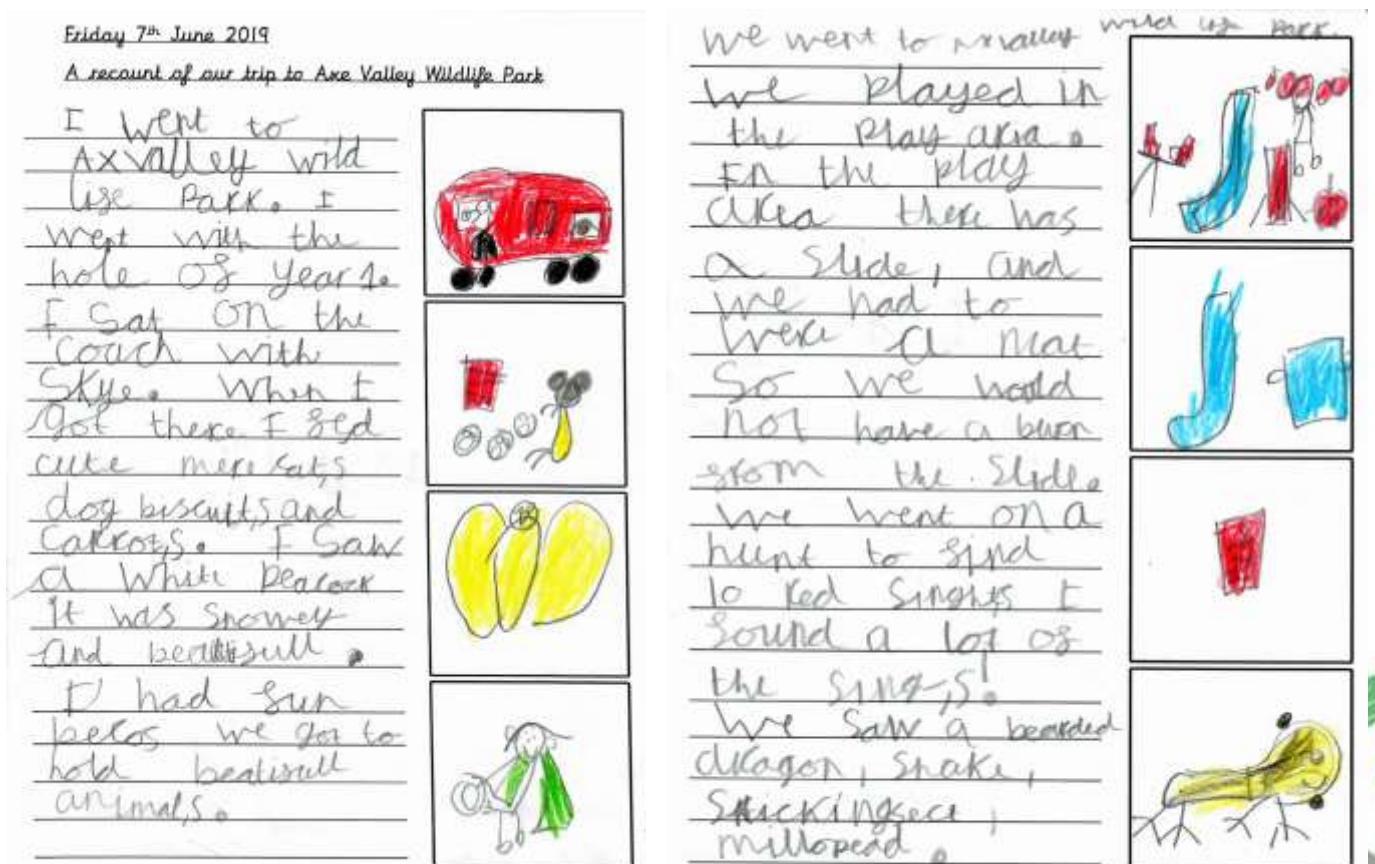 Friday 7th June 2019
A recount of our trip to Axe Valley Wildlife Park
I went to
Axvalley wild
life Park. I
went with the
hole of year 1.
I Sat on the
coach with
Skye. When I
got there I fed
cute mere cats
dog biscuits and
carrots. I Saw
a white peacock
it was snowey
and beatifull.
I had fun
becos we got to
hold beatifull
animals.
We went to axvalley wild life Park.
we played in
the play area.
In the play
area there was
a slide, and
we had to
were a mat
So we would
not have a burn
from the Slide.
we went on a
hunt to find
10 red finghs I
found a lot of
the fings!
We saw a bearded
dragon, snake,
Stickingsect,
millopead.